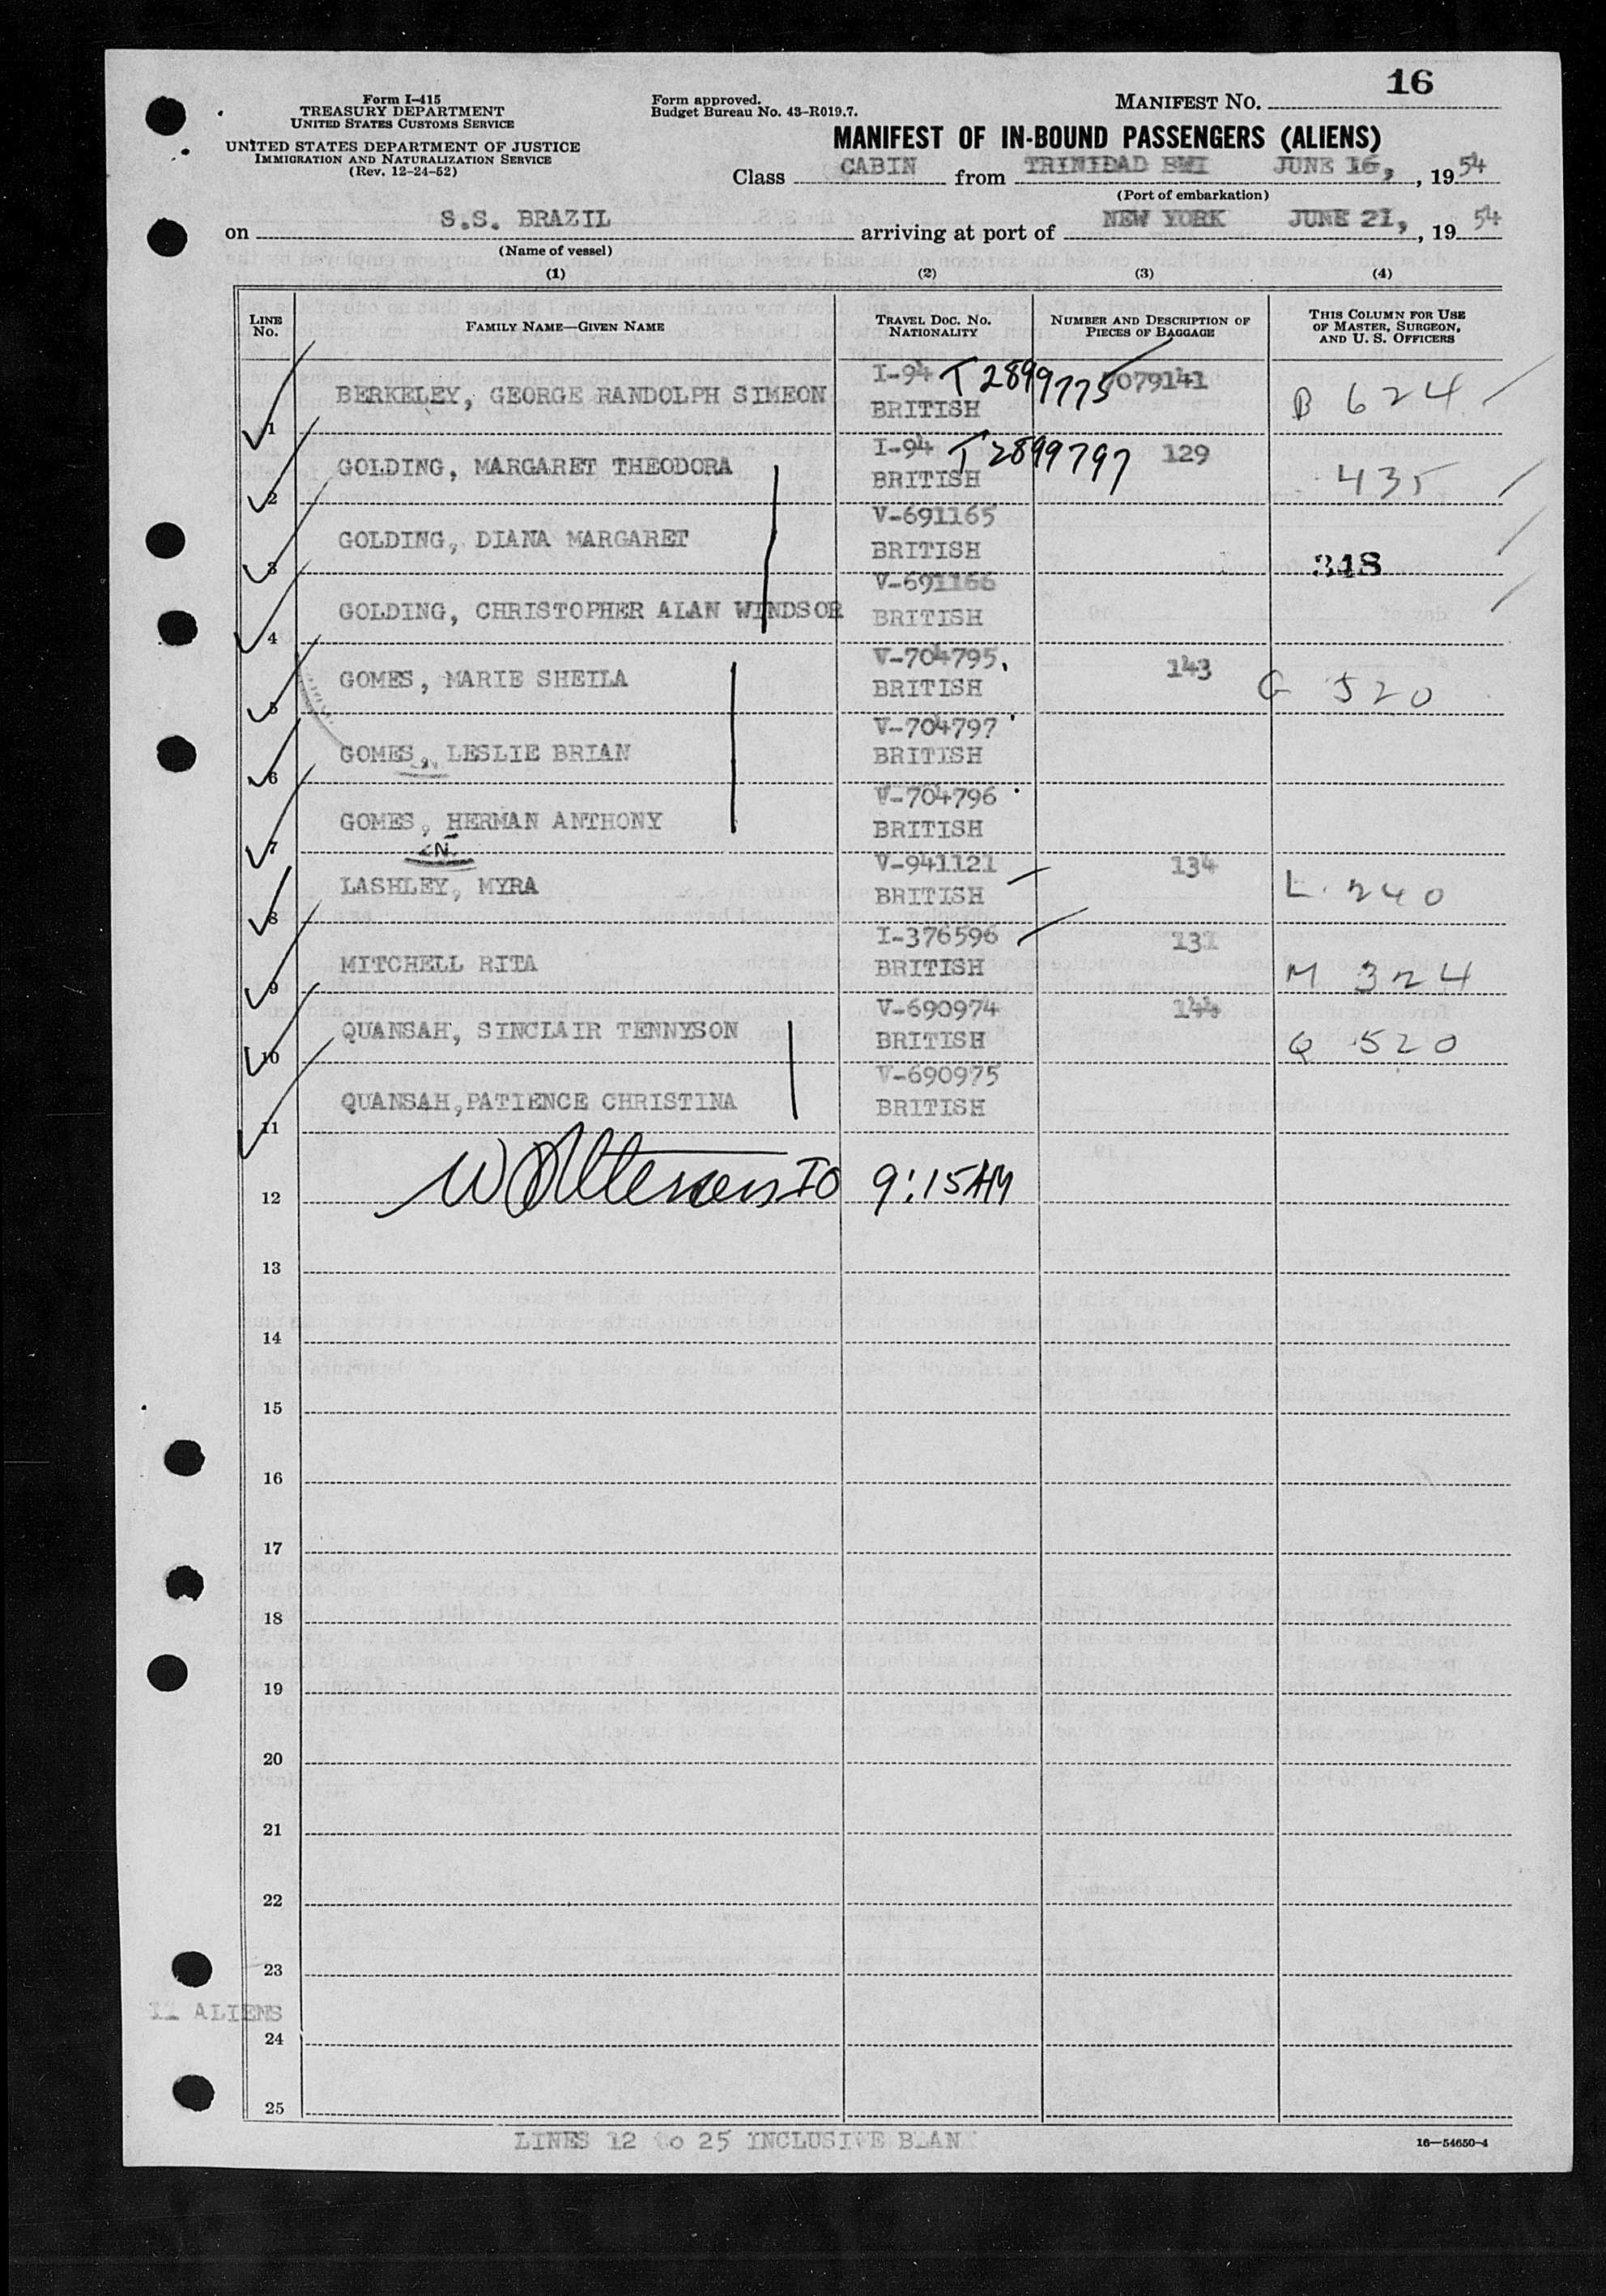 16
Form I-415
TREASURY DEPARTMENT
UNITED STATES CUSTOMS SERVICE
UNITED STATES DEPARTMENT OF JUSTICE
IMMIGRATION AND NATURALIZATION SERVICE
(Rev. 12-24-52)
Form approved.
Budget Bureau No. 43-R019.7.
MANIFEST NO.
MANIFEST OF IN-BOUND PASSENGERS (ALIENS)
Class CABIN from TRINIDAD BWI JUNE 16, , 19 54
(Port of embarkation)
on S.S. BRAZIL arriving at port of NEW YORK JUNE 21, , 19 54
(Name of vessel)
(1) (2) (3) (4)
LINE No. FAMILY NAME—GIVEN NAME TRAVEL DOC. NO. NATIONALITY NUMBER AND DESCRIPTION OF PIECES OF BAGGAGE THIS COLUMN FOR USE OF MASTER, SURGEON, AND U. S. OFFICERS
1 BERKELEY, GEORGE RANDOLPH SIMEON I-94 T 2899775 BRITISH 7079141 B 624
2 GOLDING, MARGARET THEODORA I-94 T 2899797 BRITISH 129 435
3 GOLDING, DIANA MARGARET V-691165 BRITISH 348
4 GOLDING, CHRISTOPHER ALAN WINDSOR V-691166 BRITISH
5 GOMES, MARIE SHEILA V-704795 BRITISH 143 G 520
6 GOMES, LESLIE BRIAN V-704797 BRITISH
7 GOMES, HERMAN ANTHONY V-704796 BRITISH
N.
8 LASHLEY, MYRA V-941121 BRITISH 134 L 240
9 MITCHELL RITA I-376596 BRITISH 131 M 324
10 QUANSAH, SINCLAIR TENNYSON V-690974 BRITISH 144 Q 520
11 QUANSAH,PATIENCE CHRISTINA V-690975 BRITISH
12 IO 9:15 AM
13
14
15
16
17
18
19
20
21
22
23
11 ALIENS
24
25
LINES 12 to 25 INCLUSIVE BLANK
16—54650-4